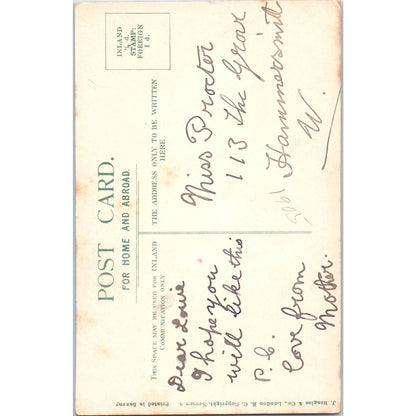 POST CARD.
FOR HOME AND ABROAD.
INLAND
½ d.
STAMP:
FOREIGN
1 d.
THIS SPACE MAY BE USED FOR INLAND
COMMUNICATION ONLY
THE ADDRESS ONLY TO BE WRITTEN
HERE.
Dear Louie
I hope you
will like this
P. C.
love from
Mother.
Miss Procter
113 The Grove
Hammersmith
W.
J. Beagles & Co., London E. C. Copyright.
Printed in Saxony